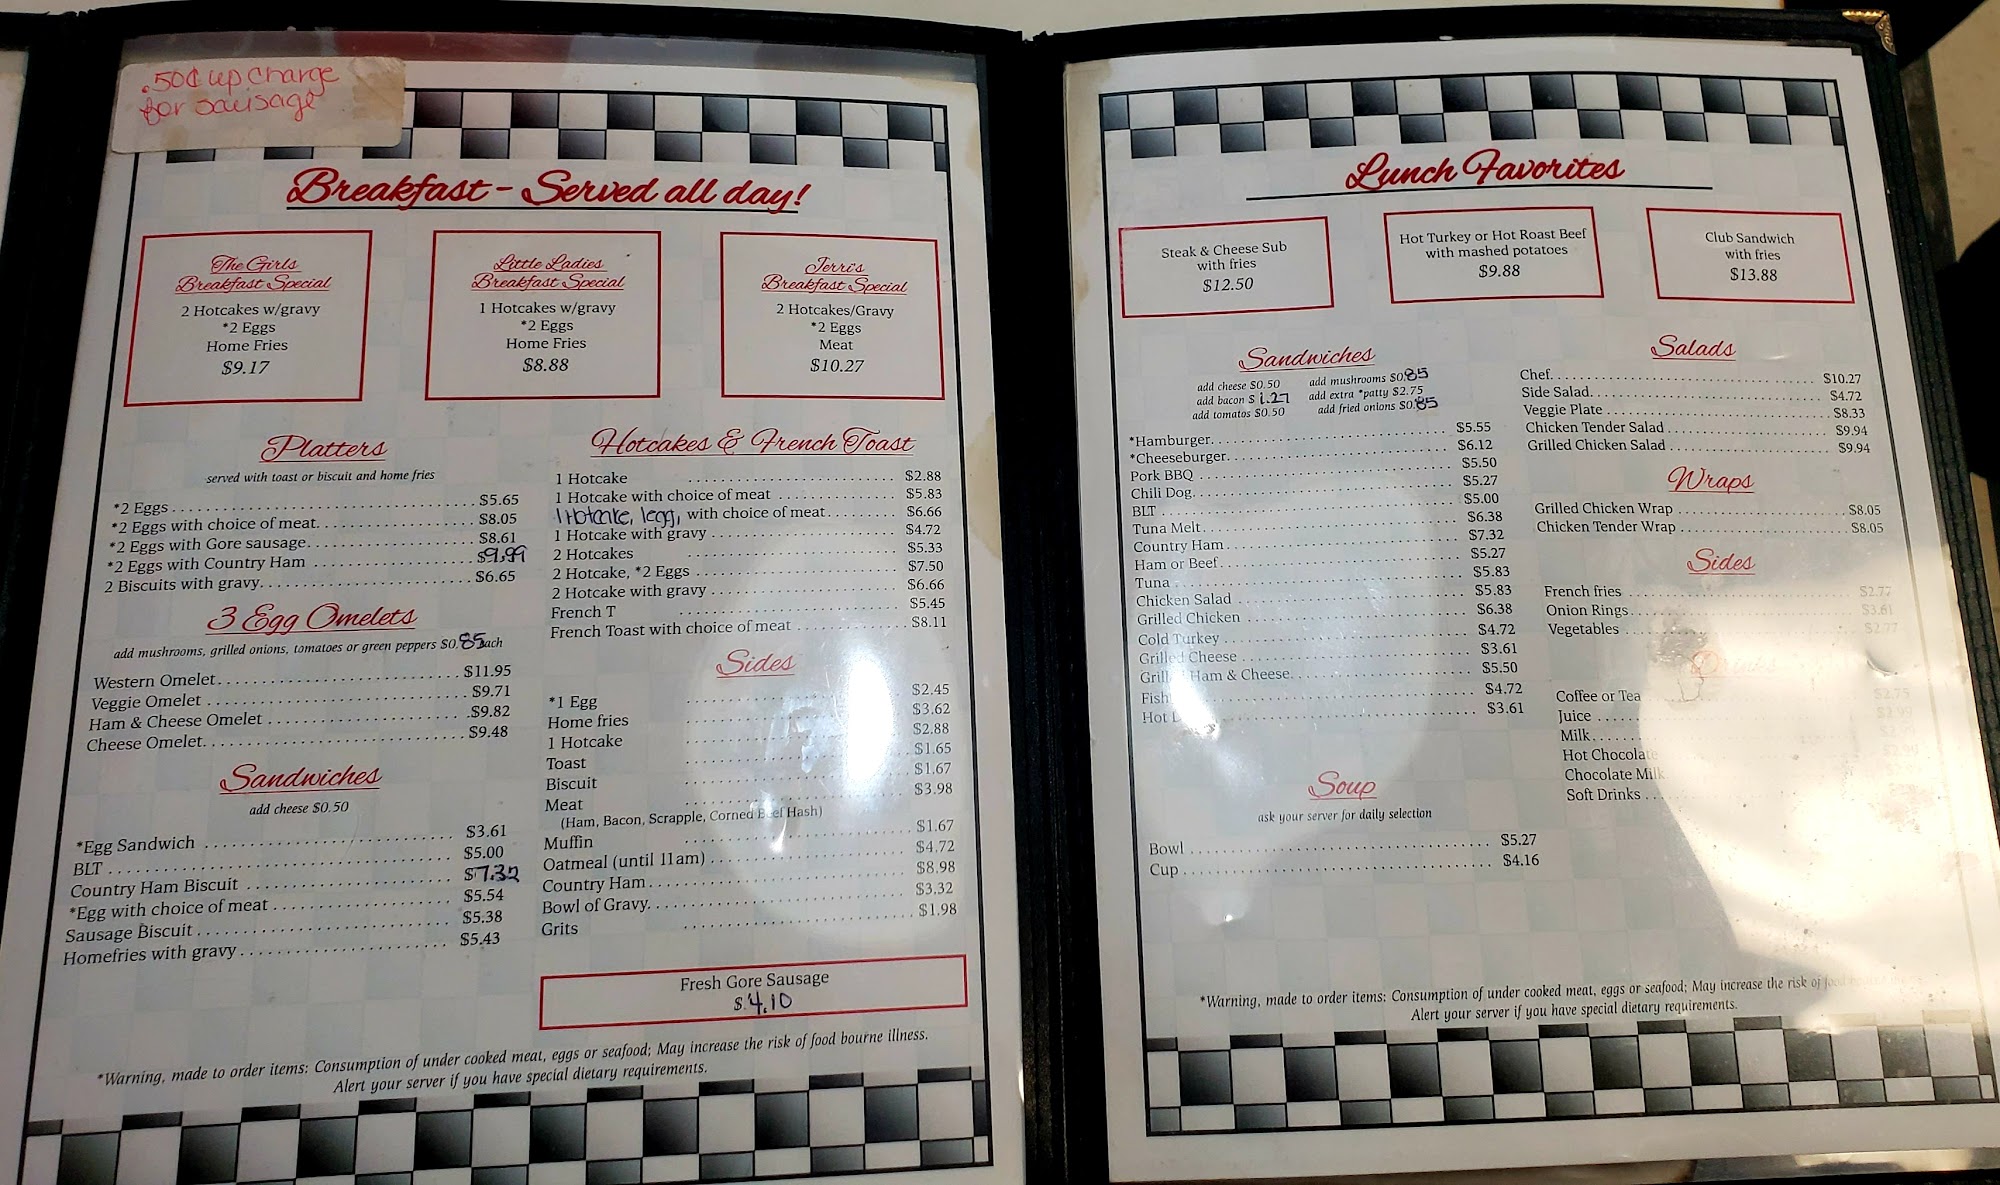 .50¢ up charge
for sausage
Breakfast - Served all day!
The Girls
Breakfast Special
2 Hotcakes w/gravy
*2 Eggs
Home Fries
$9.17
Little Ladies
Breakfast Special
1 Hotcakes w/gravy
*2 Eggs
Home Fries
$8.88
Jerri's
Breakfast Special
2 Hotcakes/Gravy
*2 Eggs
Meat
$10.27
Platters
served with toast or biscuit and home fries
*2 Eggs $5.65
*2 Eggs with choice of meat $8.05
*2 Eggs with Gore sausage $8.61
*2 Eggs with Country Ham $9.99
2 Biscuits with gravy $6.65
3 Egg Omelets
add mushrooms, grilled onions, tomatoes or green peppers $0.85 each
Western Omelet $11.95
Veggie Omelet $9.71
Ham & Cheese Omelet $9.82
Cheese Omelet $9.48
Sandwiches
add cheese $0.50
*Egg Sandwich $3.61
BLT $5.00
Country Ham Biscuit $7.32
*Egg with choice of meat $5.54
Sausage Biscuit $5.38
Homefries with gravy $5.43
Hotcakes & French Toast
1 Hotcake $2.88
1 Hotcake with choice of meat $5.83
1 Hotcake, 1 egg, with choice of meat $6.66
1 Hotcake with gravy $4.72
2 Hotcakes $5.33
2 Hotcake, *2 Eggs $7.50
2 Hotcake with gravy $6.66
French T $5.45
French Toast with choice of meat $8.11
Sides
*1 Egg $2.45
Home fries $3.62
1 Hotcake $2.88
Toast $1.65
Biscuit $1.67
Meat $3.98
(Ham, Bacon, Scrapple, Corned Beef Hash)
Muffin $1.67
Oatmeal (until 11am) $4.72
Country Ham $8.98
Bowl of Gravy $3.32
Grits $1.98
Fresh Gore Sausage
$4.10
*Warning, made to order items: Consumption of under cooked meat, eggs or seafood; May increase the risk of food bourne illness.
Alert your server if you have special dietary requirements.
Lunch Favorites
Steak & Cheese Sub
with fries
$12.50
Hot Turkey or Hot Roast Beef
with mashed potatoes
$9.88
Club Sandwich
with fries
$13.88
Sandwiches
add cheese $0.50 add mushrooms $0.85
add bacon $1.27 add extra *patty $2.75
add tomatos $0.50 add fried onions $0.85
*Hamburger $5.55
*Cheeseburger $6.12
Pork BBQ $5.50
Chili Dog $5.27
BLT $5.00
Tuna Melt $6.38
Country Ham $7.32
Ham or Beef $5.27
Tuna $5.83
Chicken Salad $5.83
Grilled Chicken $6.38
Cold Turkey $4.72
Grilled Cheese $3.61
Grill Ham & Cheese $5.50
Fish $4.72
Hot $3.61
Soup
ask your server for daily selection
Bowl $5.27
Cup $4.16
Salads
Chef $10.27
Side Salad $4.72
Veggie Plate $8.33
Chicken Tender Salad $9.94
Grilled Chicken Salad $9.94
Wraps
Grilled Chicken Wrap $8.05
Chicken Tender Wrap $8.05
Sides
French fries $2.77
Onion Rings $3.61
Vegetables $2.77
Drinks
Coffee or Tea $2.75
Juice $2.99
Milk
Hot Chocolate
Chocolate Milk
Soft Drinks
*Warning, made to order items: Consumption of under cooked meat, eggs or seafood; May increase the risk of
Alert your server if you have special dietary requirements.